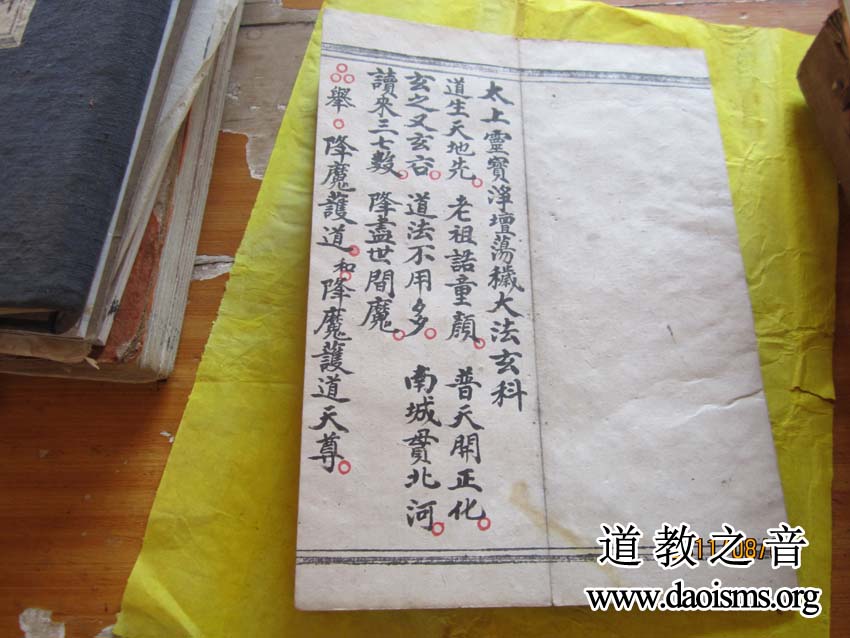 太上靈寳淨壇蕩穢大法玄科
道生天地先。老祖詰童顏。普天開正化。
玄之又玄谷。道法不用多。南城貫北河。
讀來三七數。降盡世間魔。
舉。降魔護道。和降魔護道天尊。
道教之音
www.daoisms.org